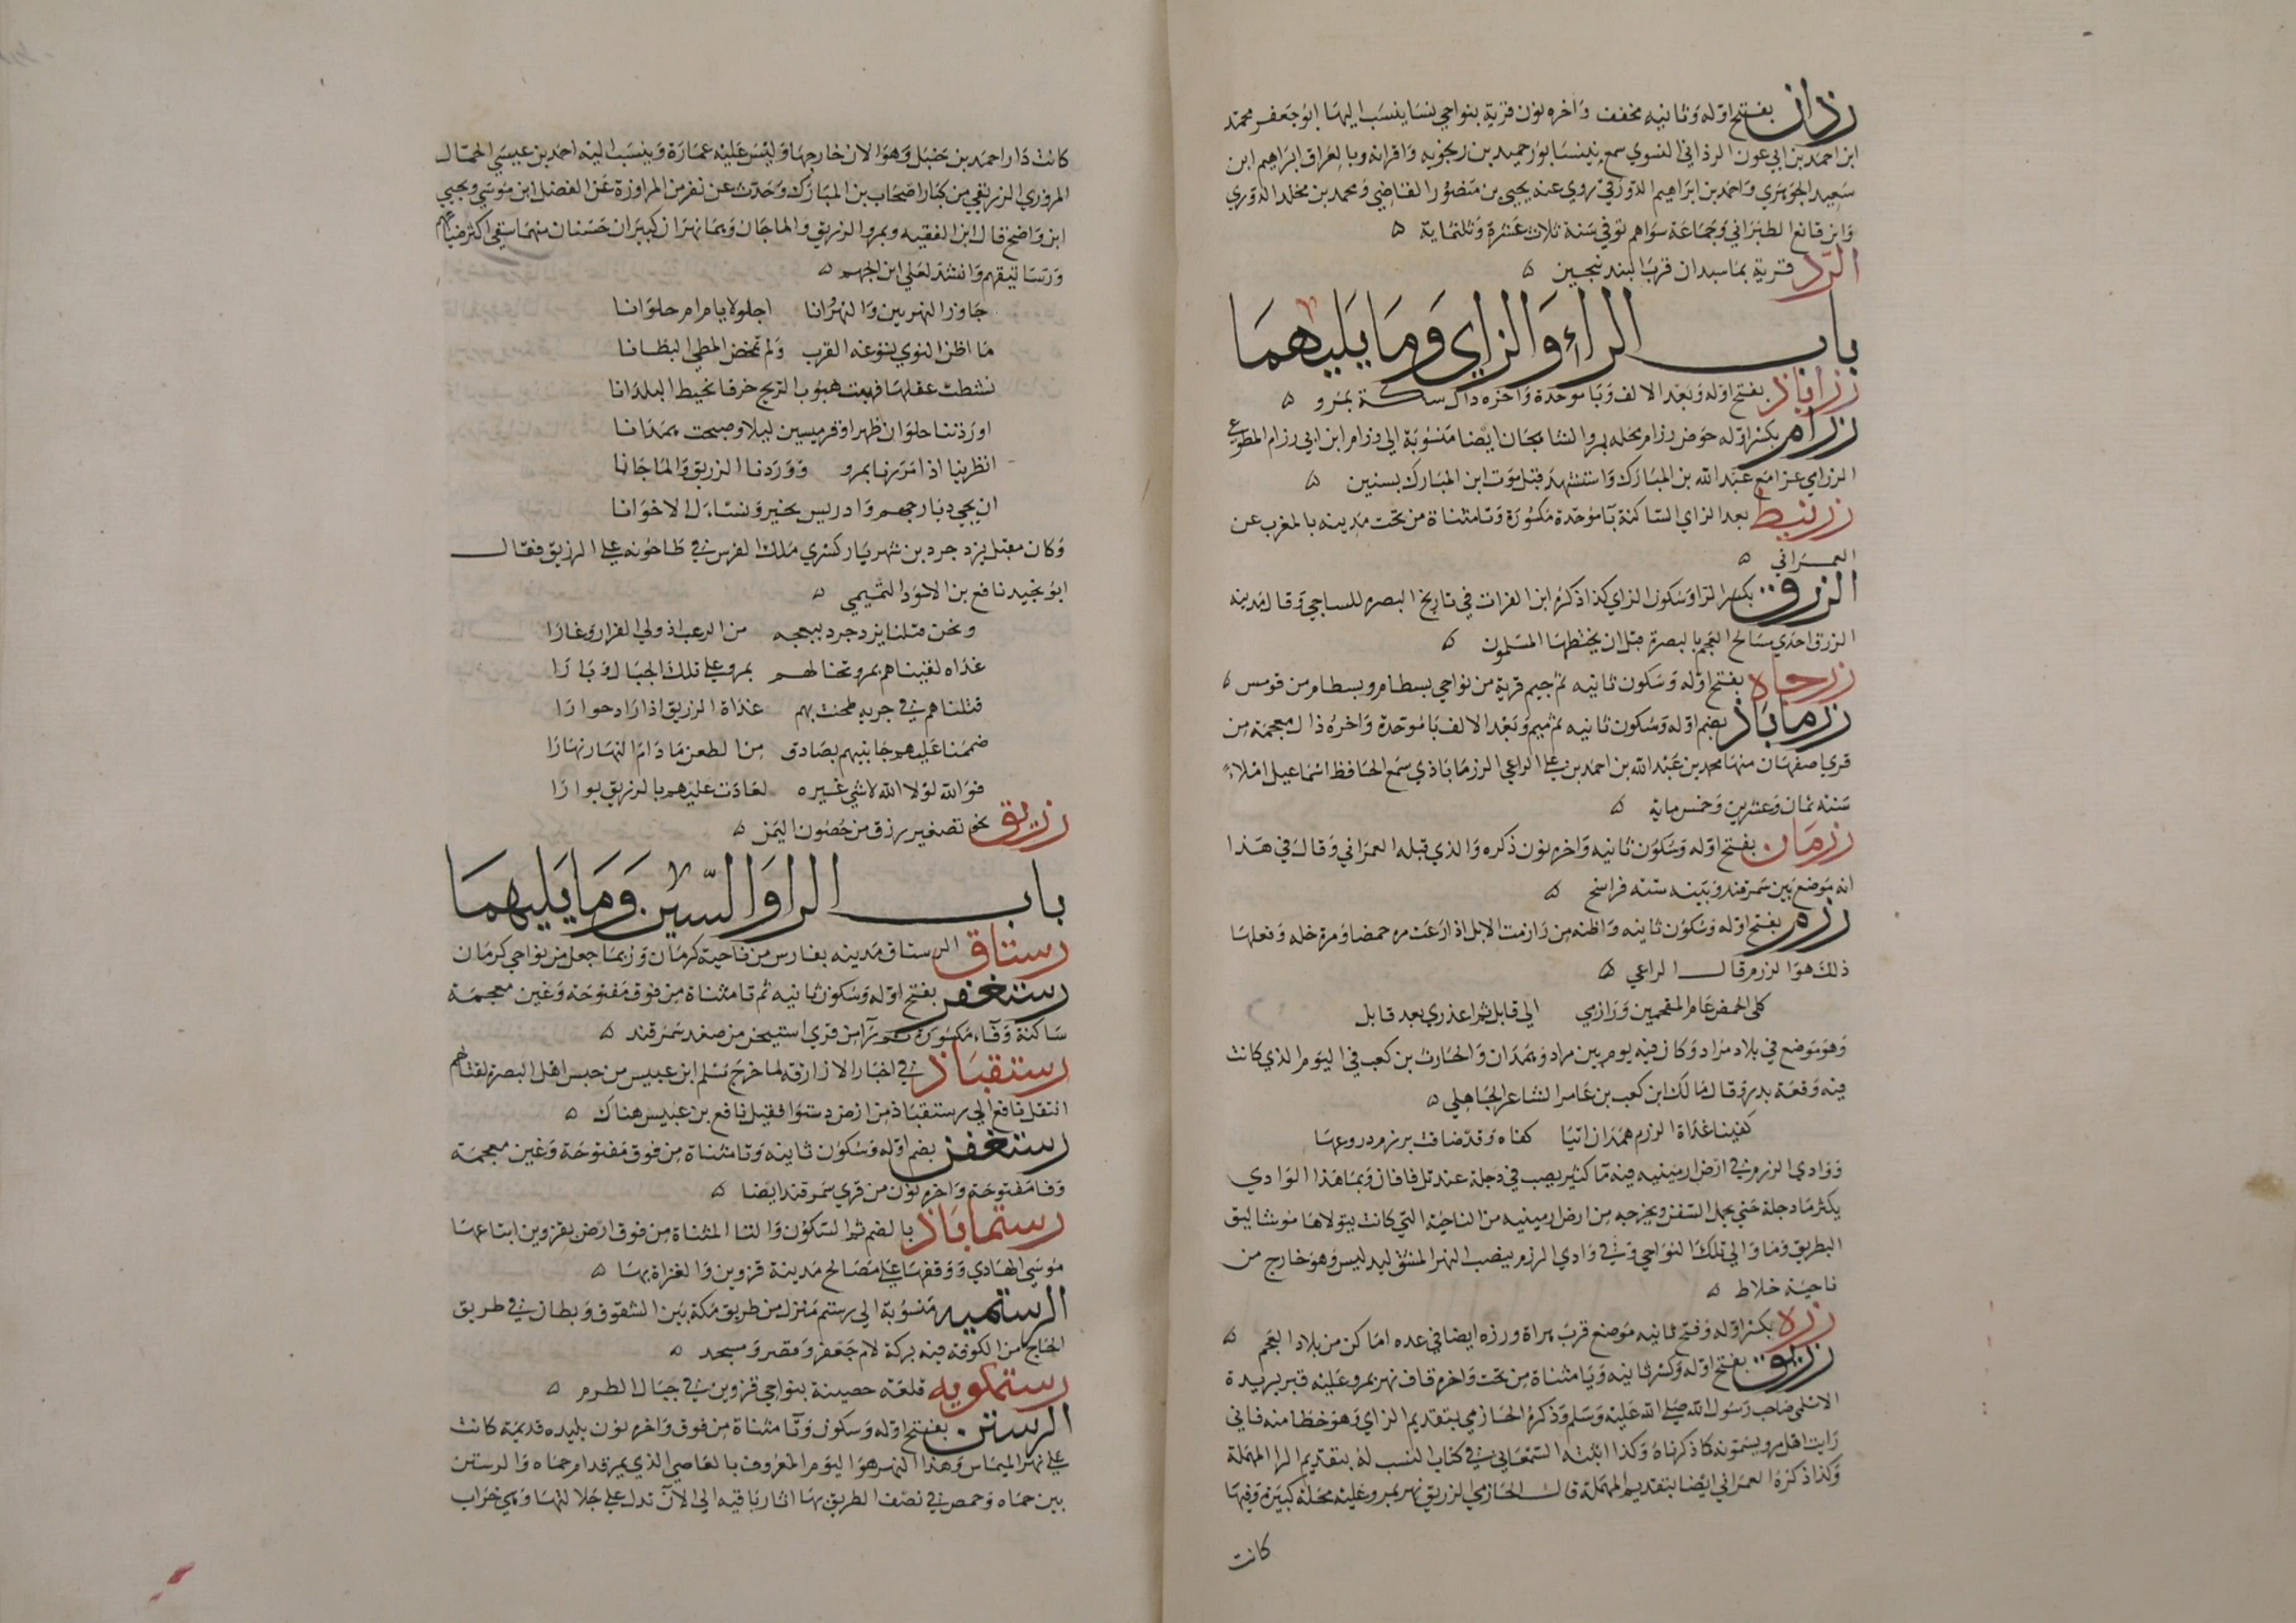 رذان بفتح اوله وثانيه مخفف واخره نون قرية بنواحي نسا ينسب اليها ابو جعفر محمد
ابن احمد بن ابي عون الرذاني النسوي سمع بنيسابور حميد بن زنجويه واقرانه وبالعراق ابراهيم ابن
سعيد الجوهري واحمد بن ابراهيم الدورقي روي عنه يحيي بن منصور القاضي ومحمد بن مخلد الدوري
وابن قانع الطبراني وجماعة سواهم توفي سنة ثلاث عشرة وثلثماية ه
الرذ قرية بماسبذان قرب البندنيجين ه
باب الراء والزاي وما يليهما
رزاباذ بفتح اوله وبعد الالف وبا موحدة واخره ذال سكة بمرو ه
رزام بكسر اوله حوض رزام محلة بمرو الشاهجان ايضا منسوبة الي رزام ابن ابي رزام المطوعي
الرزامي غزا مع عبد الله بن المبارك واستشهد قبل موت ابن المبارك بسنين ه
رزبيط بعد الزاي الساكنة با موحدة مكسورة وتا مثناة من تحت مدينه بالمغرب عن
العمراني ه
الرزق بكسر الرا وسكون الزاي كذا ذكره ابن الفرات في تاريخ البصره للساجي وقال مدينه
الرزق احدي مسالح العجم بالبصرة قبل ان يختطها المسلمون ه
رزجاه بفتح اوله وسكون ثانيه ثم جيم قرية من نواحي بسطام وبسطام من قومس ه
رزماباذ بضم اوله وسكون ثانيه ثم ميم وبعد الالف با موحدة واخره ذال معجمة من
قري اصفهان منها محمد بن عبد الله بن احمد بن علي الراعي الرزماباذي سمع الحافظ اسماعيل املاء
سنة ثمان وعشرين وخمس ماية ه
رزمان بفتح اوله وسكون ثانيه واخره نون ذكره والذي قبله العمراني وقال في هذا
انه موضع بين سمرقند وبينه ستة فراسخ ه
رزم بفتح اوله وسكون ثانيه واظنه من رازمت الابل اذا رعت مره حمضا ومرة خله وفعلها
ذلك هو الرزم قال الراعي ه
كلي الحمض عام المقحمين ورازمي الي قابل ثم اعذري بعد قابل
وهو موضع في بلاد مراد وكان فيه يوم بين مراد وهمدان والحارث بن كعب في اليوم الذي كانت
فيه وقعة بدر وقال مالك ابن كعب بن عامر الشاعر الجاهلي ه
كفينا غداة الرزم همدان اتيا كفاه وقد ضاقت برزم دروعها
ووادي الرزم في ارض ارمينيه فيه ما كثير يصب في دجلة عند تل فافان وبما هذا الوادي
يكثر ما دجلة حتي يحمل السفن ويخرجه من ارض ارمينيه من الناحية التي كانت يتولاها موشاليق
البطريق وما والي تلك النواحي وفي وادي الرزم ينصب النهر المشتق لبدليس وهو خارج من
ناحية خلاط ه
رزه بكسر اوله وفتح ثانيه موضع قرب هراة ورزه ايضا في عده اماكن من بلاد العجم ه
رزيق بفتح اوله وكسر ثانيه ويا مثناة من تحت واخره قاف نهر بمرو عليه قبر بريدة
الاسلمي صاحب رسول الله صلي الله عليه وسلم وذكره الحازمي بتقديم الزاي وهو خطا منه فاني
رايت اهل مرو يسمونه كما ذكرناه وكذا اثبته السمعاني في كتاب النسب له بتقديم الرا المهملة
وكذا ذكره العمراني ايضا بتقديم المهملة قال الحازمي الرزيق نهر بمرو عليه محلة كبيرة وفيها
كانت
كانت دار احمد بن حنبل وهو الان خارجها وليس عليه عمارة وينسب اليه احمد بن عيسي الحمال
المروزي الرزيقي من كبار اصحاب بن المبارك وحدث عن نفر من المراوزة عن الفضل ابن موسي ويحيي
ابن واضح قال ابن الفقيه وبمرو الرزيق والماجان وهما نهران كبيران حسنان منهما سقي اكثر ضياعهم
ورساتيقهم وانشد لعلي ابن الجهم ه
جاوز النهرين والنهروانا اجلولا يا مرام حلوانا
ما اظن النوي يسوغه القرب ولم تمخض المطي البطانا
نشطت عقلها فهبت هبوب الريح خرقا تخيط البلدانا
اوردتنا حلوان ظهرا وقرميسين ليلا وصبحت همدانا
انظرينا اذا مررنا بمرو ووردنا الرزيق والماجانا
ان يحيي ديار جهم وادريس بخير ونسال الاخوانا
وكان مقتل يزدجرد بن شهريار كسري ملك الفرس في طاحونة علي الرزيق فقال
ابو نجيد نافع بن الاسود التميمي ه
ونحن قتلنا يزدجرد ببعجه من الرعب اذ ولي الفرار وغارا
غداه لقيناهم بمرو تخالهم بمرو علي تلك الجبال وبارا
قتلناهم في حربه طحنت بهم غداة الرزيق اذا راد حوارا
ضممنا عليهم جانبيهم بصادق من الطعن ما دام النهار نهارا
فوالله لولا الله لا شي غيره لعادت عليهم بالرزيق بوارا
رزيق نحو تصغير رزق من حصون اليمن ه
باب الرا والسين وما يليهما
رستاق الرستاق مدينه بفارس من ناحية كرمان وربما جعل من نواحي كرمان
رستغفر بفتح اوله وسكون ثانيه ثم تا مثناة من فوق مفتوحة وغين معجمة
ساكنة وفاء مكسورة را من قري اشتيخن من صغد سمرقند ه
رستقباذ في اخبار الازارقه لما خرج مسلم ابن عبيس من حبس اهل البصرة لقتالهم
انتقل نافع الي رستقباذ من ارض دستوا فقيل نافع بن عبيس هناك ه
رستغفن بضم اوله وسكون ثانيه وتا مثناة من فوق مفتوحة وغين معجمة
وفا مفتوحة واخره نون من قري سمرقند ايضا ه
رستماباذ بالضم ثم السكون والتا المثناة من فوق ارض بقزوين ابتاعها
موسي الهادي ووقفها علي مصالح مدينة قزوين والغزاة بها ه
الرستميه منسوبة الي رستم منزل من طريق مكة بين الشقوق وبطان في طريق
الحاج من الكوفة فيه بركة لام جعفر وقصر ومسجد ه
رستمكويه قلعة حصينة بنواحي قزوين في جبال الطرم ه
الرستن بفتح اوله وسكون وتا مثناة من فوق واخره نون بليده قديمة كانت
علي نهر الميماس وهذا النهر هو اليوم المعروف بالعاصي الذي يمر قدام حماه والرستن
بين حماه وحمص في نصف الطريق بها اثار باقيه الي الان تدل علي جلالتها وهي خراب